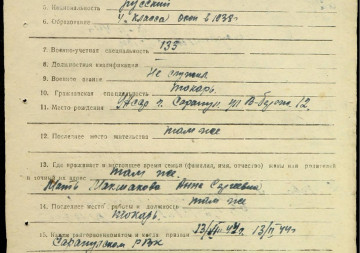 5. Национальность русский
6. Образование 4 класса окон в 1938 г.
7. Военно-учетная специальность 133
8. Должностная квалификация
9. Военное звание Не служил
10. Гражданская специальность Токарь.
11. Место рождения УАССР г. Сарапул ул 12
12. Последнее место жительства там же
13. Где проживают в настоящее время семья (фамилия, имя, отчество) жены или родителей
и точный их адрес там же.
Мать Анна Сергеевна
14. Последнее место работы и должность там же
Токарь.
15. Каким райвоенкоматом и когда призван 13/II 44г.
Сарапульском РВК